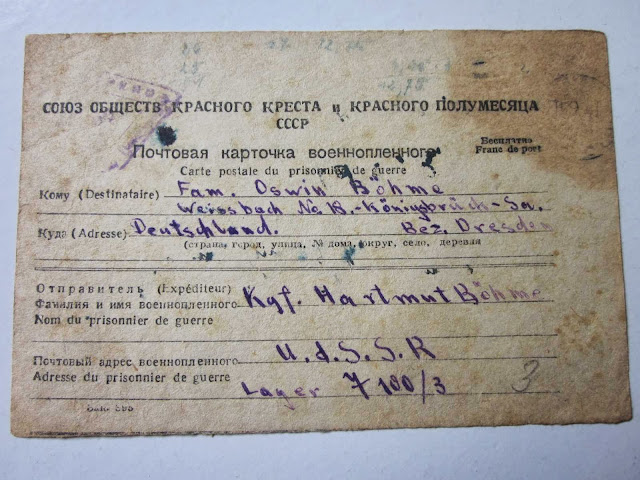 СОЮЗ ОБЩЕСТВ КРАСНОГО КРЕСТА и КРАСНОГО ПОЛУМЕСЯЦА
СССР
Почтовая карточка военнопленного
Бесплатно
Franc de port
Carte postale du prisonnier de guerre
Кому (Destinataire) Fam. Oswin Böhme
Weissbach No. 18.-Königsbrück-Sa.
Куда (Adresse) Deutschland. Bez. Dresden
(страна, город, улица, № дома, округ, село, деревня
Отправитель (Expéditeur)
Фамилия и имя военнопленного Kgf. Hartmut Böhme
Nom du prisonnier de guerre
Почтовый адрес военнопленного U.d.S.S.R
Adresse du prisonnier de guerre Lager 7180/3
3